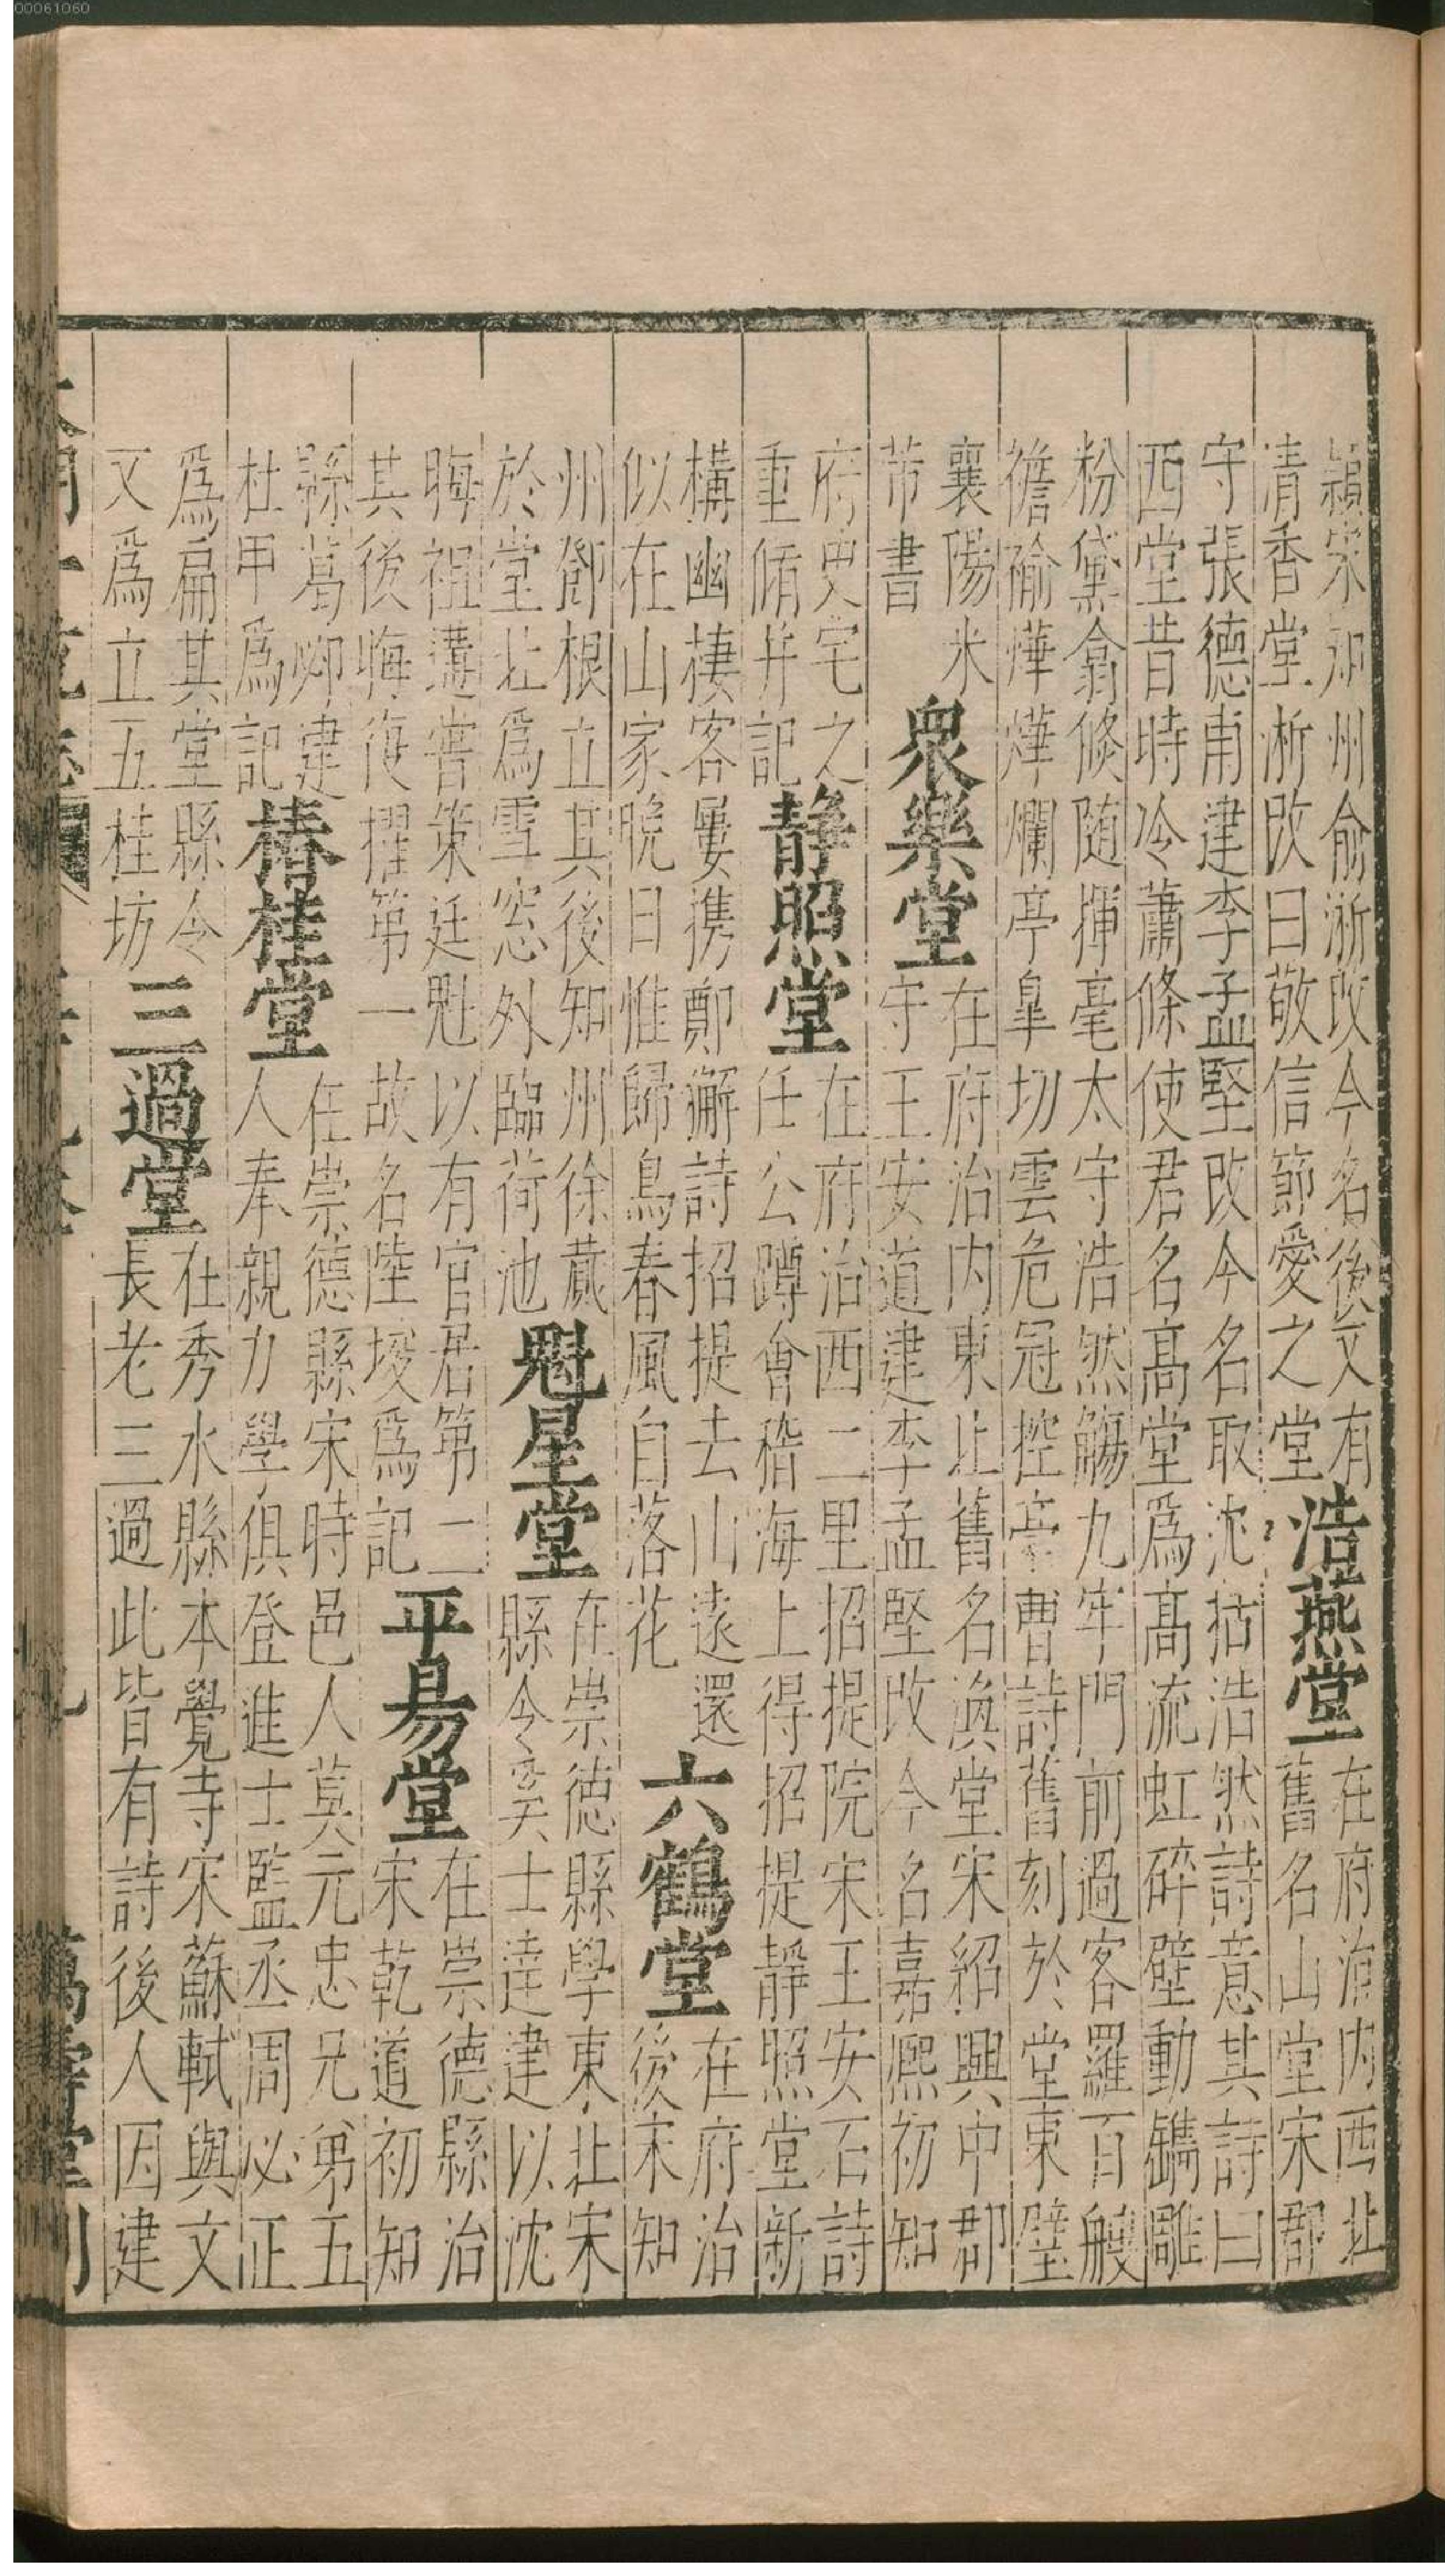 頴宋知州俞浙改今名後又有
清香堂浙改曰敬信節愛之堂
浩燕堂
在府治内西北
舊名山堂宋郡
守張德甫建李孟堅改今名取沈括浩然詩意其詩曰
西堂昔時冷蕭條使君名高堂爲高流虹碎壁動鐫雕
粉黛翕倐随揮毫太守浩然觴九牢門前過客羅百艘
襜褕燁燁爛亭臯切雲危冠控曹詩舊刻於堂東壁
襄陽米
芾書
衆樂堂
在府治内東北舊名渙堂宋紹興中郡
守王安道建李孟堅改今名嘉熈初知
府史宅之
重脩并記
静照堂
在府治西二里招提院宋王安石詩
任公蹲會稽海上得招提静照堂新
構幽棲客屢携鄭獬詩招提去山遠還
似在山家晚日惟歸鳥春風自落花
六鶴堂
在府治
後宋知
州鄧根立其後知州徐蕆
於堂北爲雪窓外臨荷池
魁星堂
在崇德縣學東北宋
縣令奚士逹建以沈
晦祖遘嘗策廷魁以有官居第二
其後晦復擢第一故名陸埈爲記
平易堂
在崇德縣治
宋乾道初知
縣葛郯建
杜甲爲記
椿桂堂
在崇德縣宋時邑人莫元忠兄弟五
人奉親力學俱登進士監丞周必正
爲扁其堂縣令
又爲立五桂坊
三過堂
在秀水縣本覺寺宋蘇軾與文
長老三過此皆有詩後人因建
大明一統志
九
萬壽堂刊
00061060